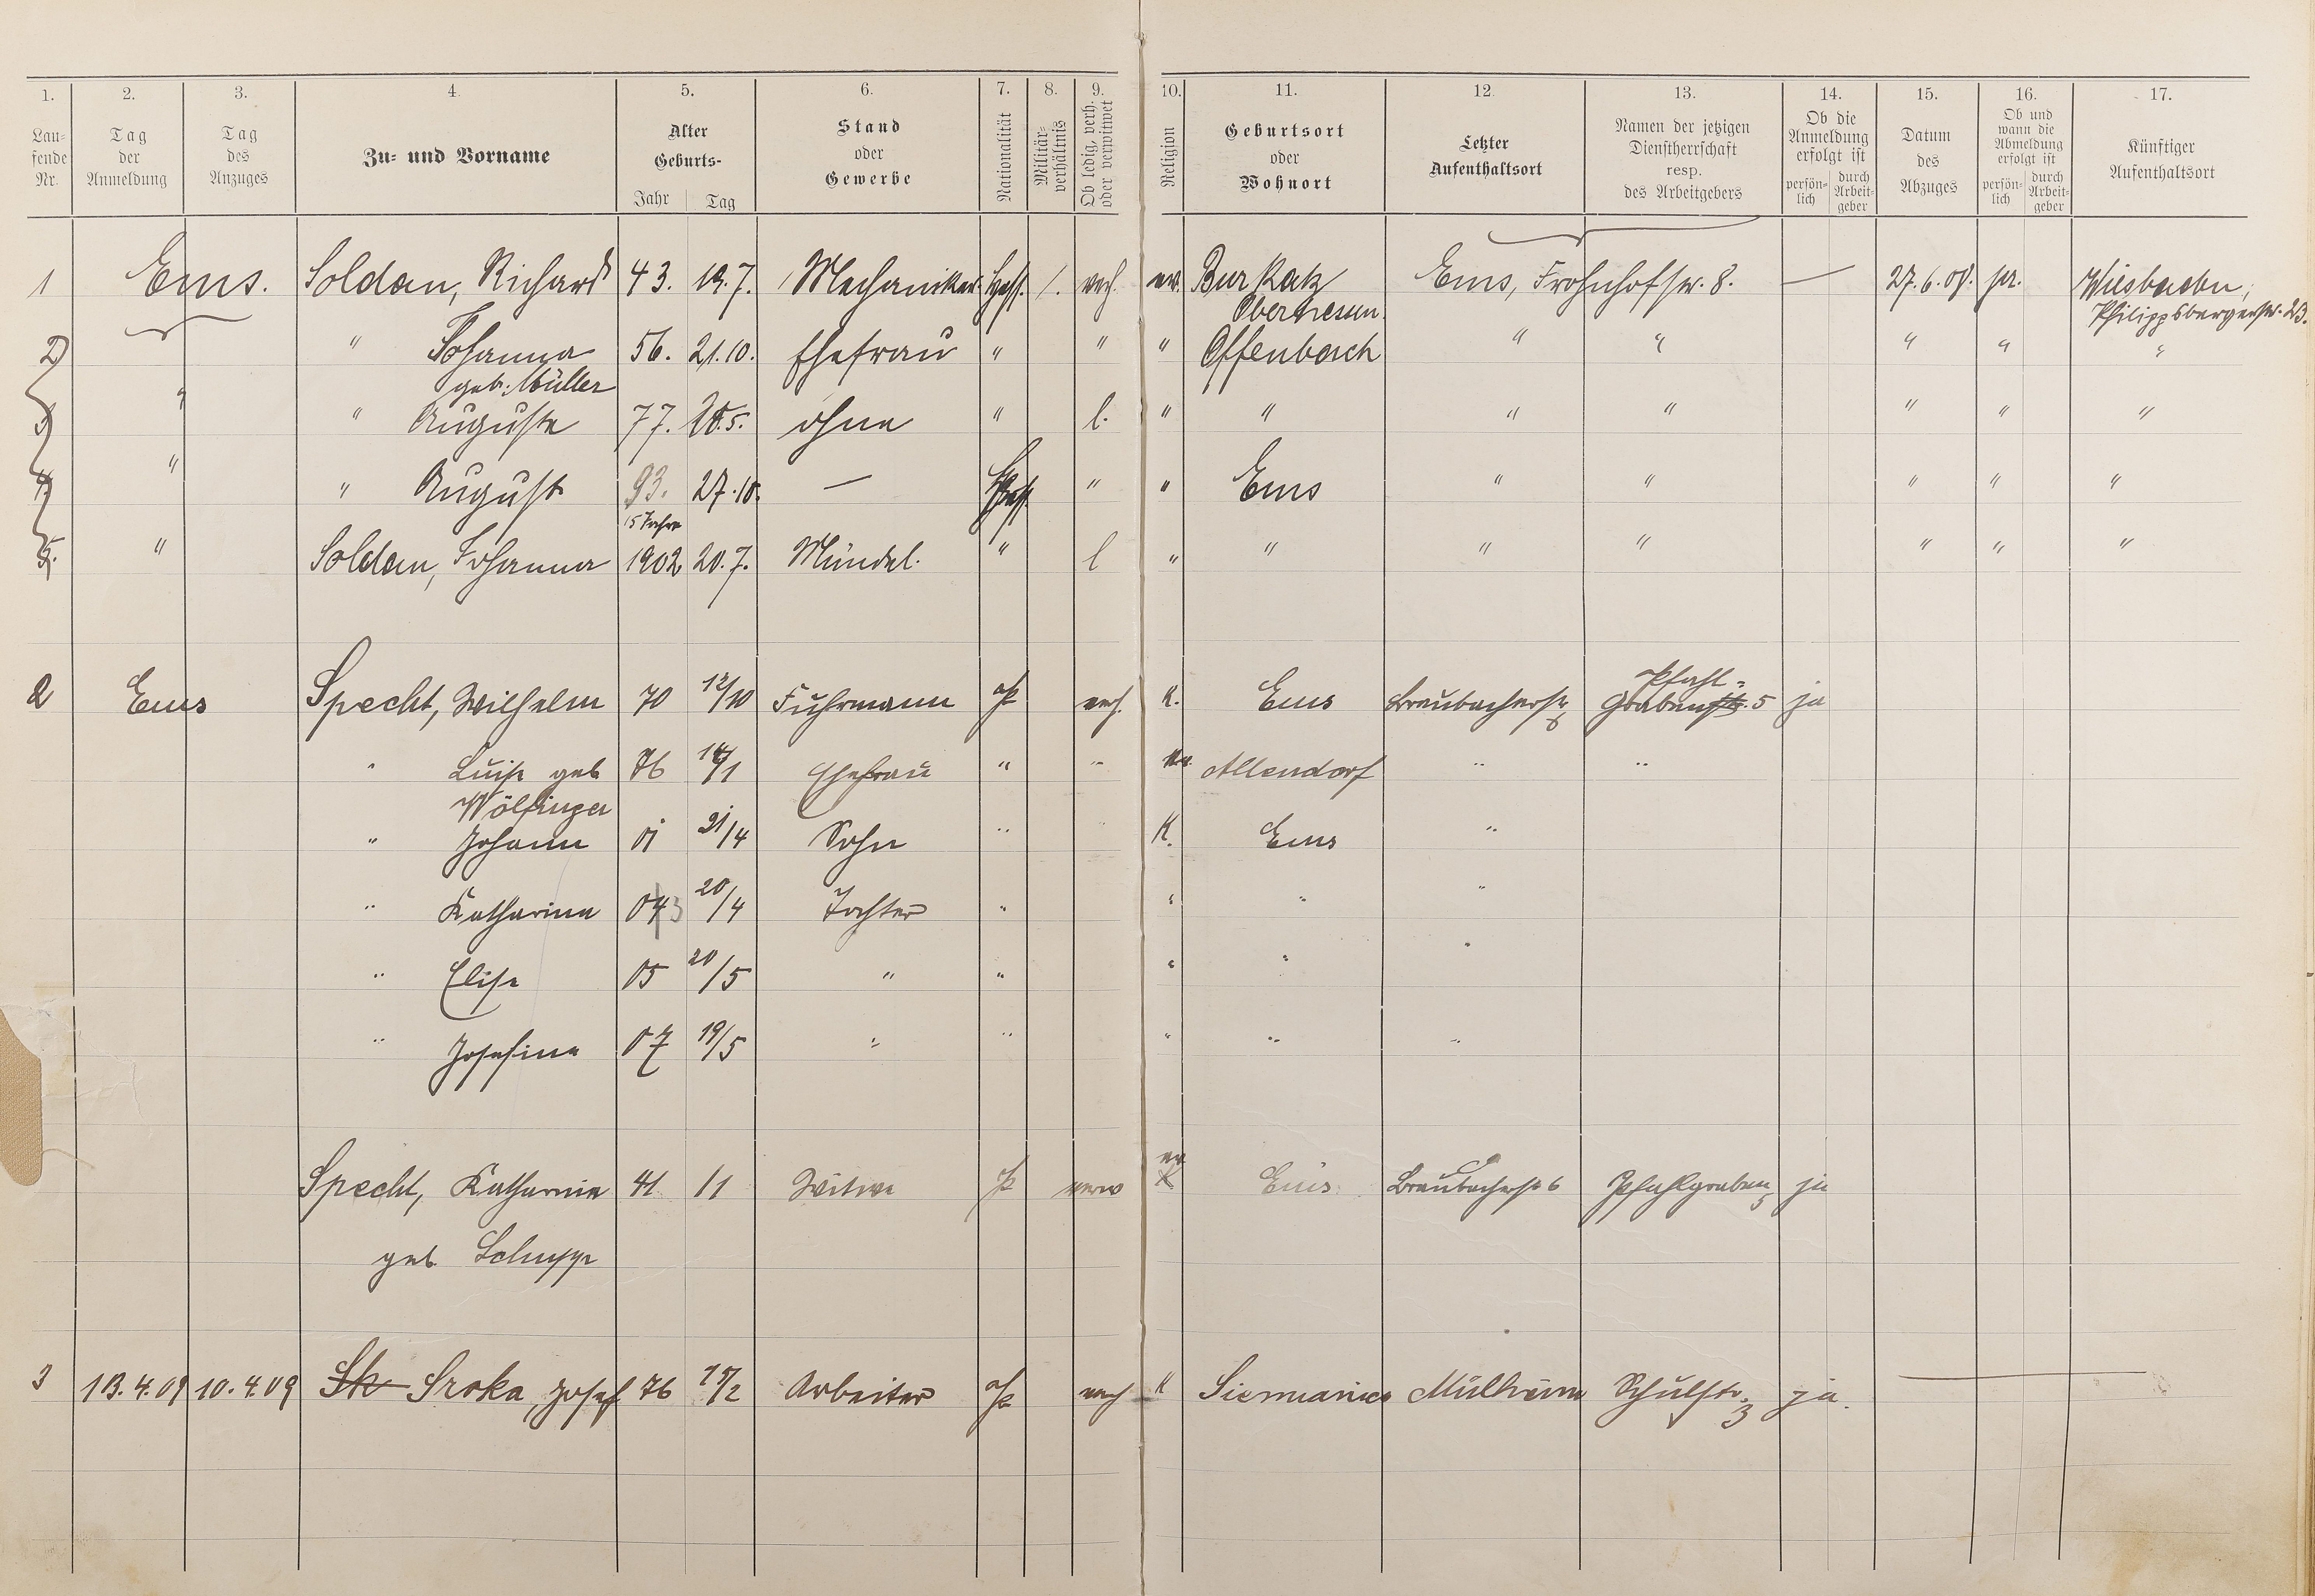 1. 2. 3. 4. 5. 6. 7. 8. 9. 10. 11. 12. 13. 14. 15. 16. 17.
Lau=
fende
Nr.
Tag
der
Anmeldung
Tag
des
Anzuges
Zu= und Vorname
Alter
Geburts-
Jahr Tag
Stand
oder
Gewerbe
Nationalität
Militär-
verhältnis
Ob ledig, verh.
oder verwitwet
Religion
Geburtsort
oder
Wohnort
Letzter
Aufenthaltsort
Namen der jetzigen
Dienstherrschaft
resp.
des Arbeitgebers
Ob die
Anmeldung
erfolgt ist
persön-
lich
durch
Arbeit-
geber
Datum
des
Abzuges
Ob und
wann die
Abmeldung
erfolgt ist
persön-
lich
durch
Arbeit-
geber
Künftiger
Aufenthaltsort
1 Ems. Soldan, Richard 43. 19.7. Mechaniker Hess. 1. verh. ev. Burkatz Ems, Frohnhofstr. 8. — 27.6.08. pr. Wiesbaden,
Oberhessen. Philippsbergerstr. 23.
2) " Johanna 56. 21.10. Ehefrau " " " Offenbach " " " " "
geb. Müller
3) " " Auguste 77. 20.5. ohne " l. " " " " " " "
4) " " August 93. 27.10. — Hess. " " Ems " " " " "
15 Jahre
5. " Soldan, Johanna 1902 20.7. Mündel. " l " " " " " " "
2 Ems Specht, Wilhelm 70 12/10 Fuhrmann P verh. K. Ems Braubacherstr 6 Pfahl=
Graben 5 ja
" Luise geb 76 14/1 Ehefrau " " ev. Allendorf " "
Wölfinger
" Johann 01 21/4 Sohn " " K. Ems "
" Katharina 043 20/4 Tochter " " " "
" Elise 05 20/5 " " " " "
" Josefine 07 19/5 " " " " "
Specht, Katharina 41 1/1 Witwe P verw ev. K Ems Braubacherstr 6 Pfahlgraben 5 ja
geb Schupp
3 13.4.09 10.4.09 Sk Sroka, Josef 76 15/2 Arbeiter P verh K Siemianice Mülheim Schulstr. 3 ja.